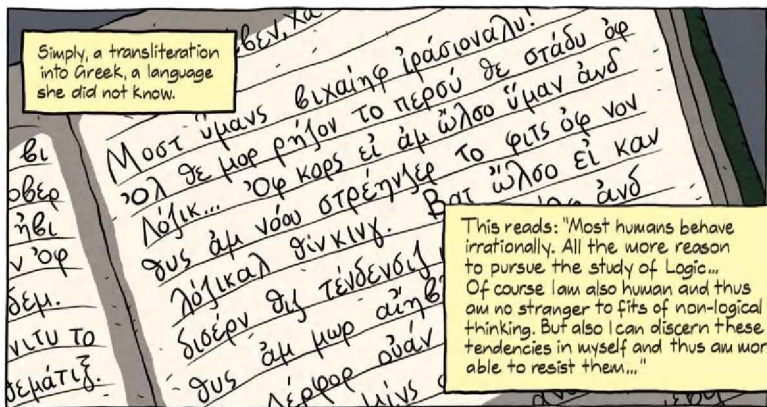 Simply, a transliteration
into Greek, a language
she did not know.
βεν, χα
Μοστ ὕμανς βιχαίηφ ἰράσιοναλυ!
Ὀλ θε μορ ρήζον το περσύ θε στάδυ ὀφ
Λόζικ... Ὀφ κορς εἰ ἀμ ὤλσο ὕμαν ἀνδ
θυς ἀμ νόου στρέηνζερ το φιτς ὀφ νον
λόζικαλ θίνκινγ. Βατ ὤλσο εἰ καν
δισέρν θιζ τένδενσιζ
θυς ἀμ μωρ αἴηβ
ἀνδ
λέρφορ οὐάν
μίνς
βι
οβερ
ήβι
ν Ὀφ
δεμ.
νιτυ το
θεμάτιξ.
This reads: "Most humans behave
irrationally. All the more reason
to pursue the study of Logic...
Of course I am also human and thus
am no stranger to fits of non-logical
thinking. But also I can discern these
tendencies in myself and thus am more
able to resist them..."